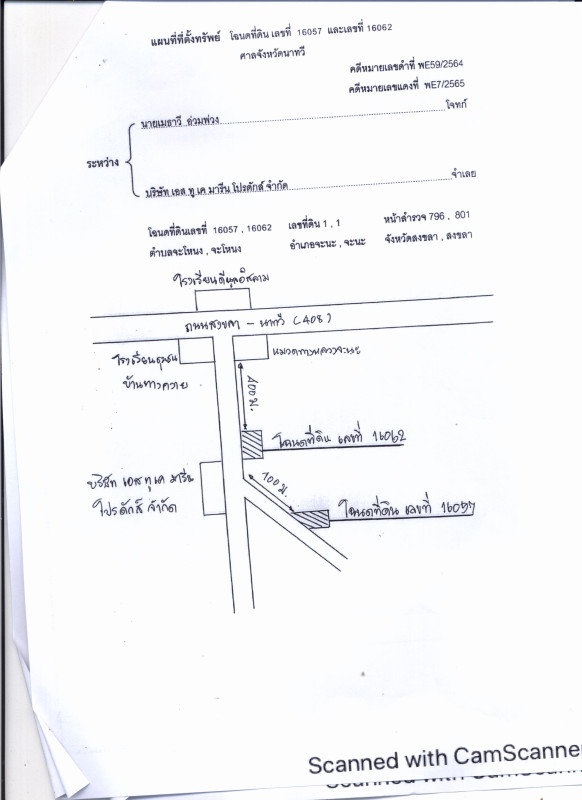 แผนที่ที่ตั้งทรัพย์ โฉนดที่ดิน เลขที่ 16057 และเลขที่ 16062
ศาลจังหวัดนาทวี
คดีหมายเลขดำที่ พE59/2564
คดีหมายเลขแดงที่ พE7/2565
นายเมธาวี อ่วมพ่วง โจทก์
ระหว่าง
บริษัท เอส ทู เค มารีน โปรดักส์ จำกัด จำเลย
โฉนดที่ดินเลขที่ 16057 , 16062 เลขที่ดิน 1 , 1 หน้าสำรวจ 796 , 801
ตำบลจะโหนง , จะโหนง อำเภอจะนะ , จะนะ จังหวัดสงขลา , สงขลา
ถนนสงขลา - นาทวี (408)
โรงเรียนชุมชน
บ้านทางควาย
หมวดทางหลวงจะนะ
400 ม.
โฉนดที่ดิน เลขที่ 16062
บริษัท เอส ทู เค มารีน
โปรดักส์ จำกัด
100 ม.
โฉนดที่ดิน เลขที่ 16057
Scanned with CamScanner